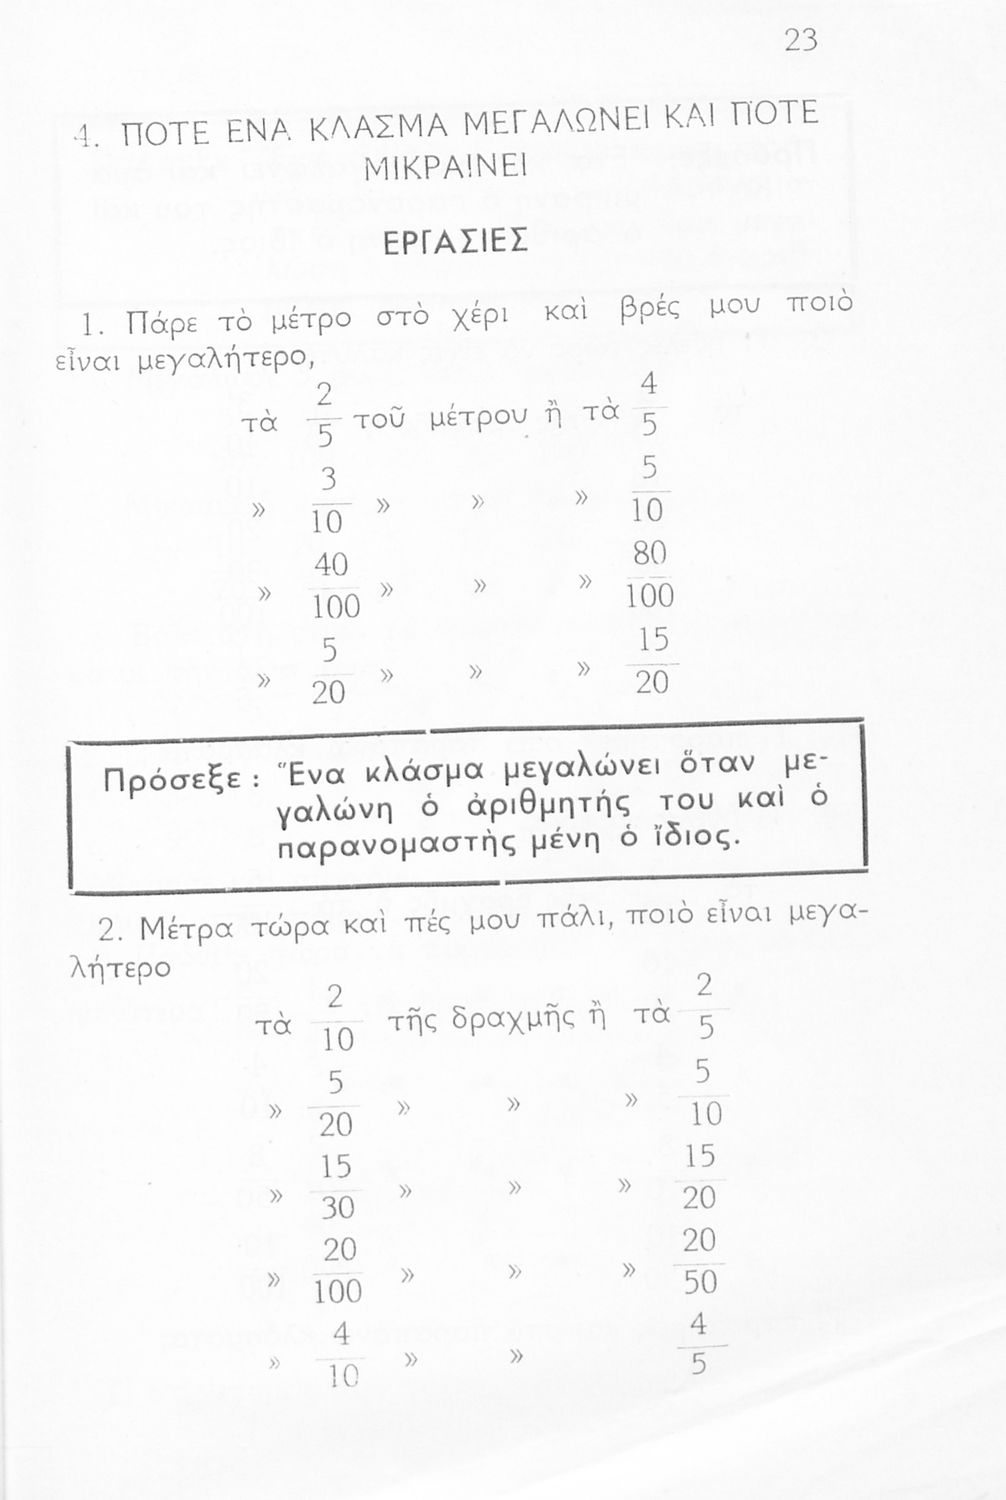 23
4. ΠΟΤΕ ΕΝΑ ΚΛΑΣΜΑ ΜΕΓΑΛΩΝΕΙ ΚΑΙ ΠΟΤΕ
ΜΙΚΡΑΙΝΕΙ
ΕΡΓΑΣΙΕΣ
1. Πάρε τὸ μέτρο στὸ χέρι καὶ βρές μου ποιὸ
εἶναι μεγαλήτερο,
τὰ 2/5 τοῦ μέτρου ἢ τὰ 4/5
» 3/10 » » » 5/10
» 40/100 » » » 80/100
» 5/20 » » » 15/20
Πρόσεξε : Ἕνα κλάσμα μεγαλώνει ὅταν με-
γαλώνη ὁ ἀριθμητής του καὶ ὁ
παρανομαστὴς μένη ὁ ἴδιος.
2. Μέτρα τώρα καὶ πές μου πάλι, ποιὸ εἶναι μεγα-
λήτερο
τὰ 2/10 τῆς δραχμῆς ἢ τὰ 2/5
» 5/20 » » » 5/10
» 15/30 » » » 15/20
» 20/100 » » » 20/50
» 4/10 » » 4/5